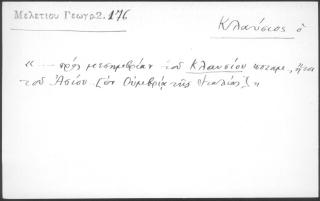 Μελετίου Γεωγρ2.176
Κλαύσιος ὁ
« ... πρὸς μεσημβρίαν τοῦ Κλαυσίου ποταμ.,
τοῦ Ἀσίου [ἐν Οὐμβρίᾳ τῆς Ἰταλίας] »